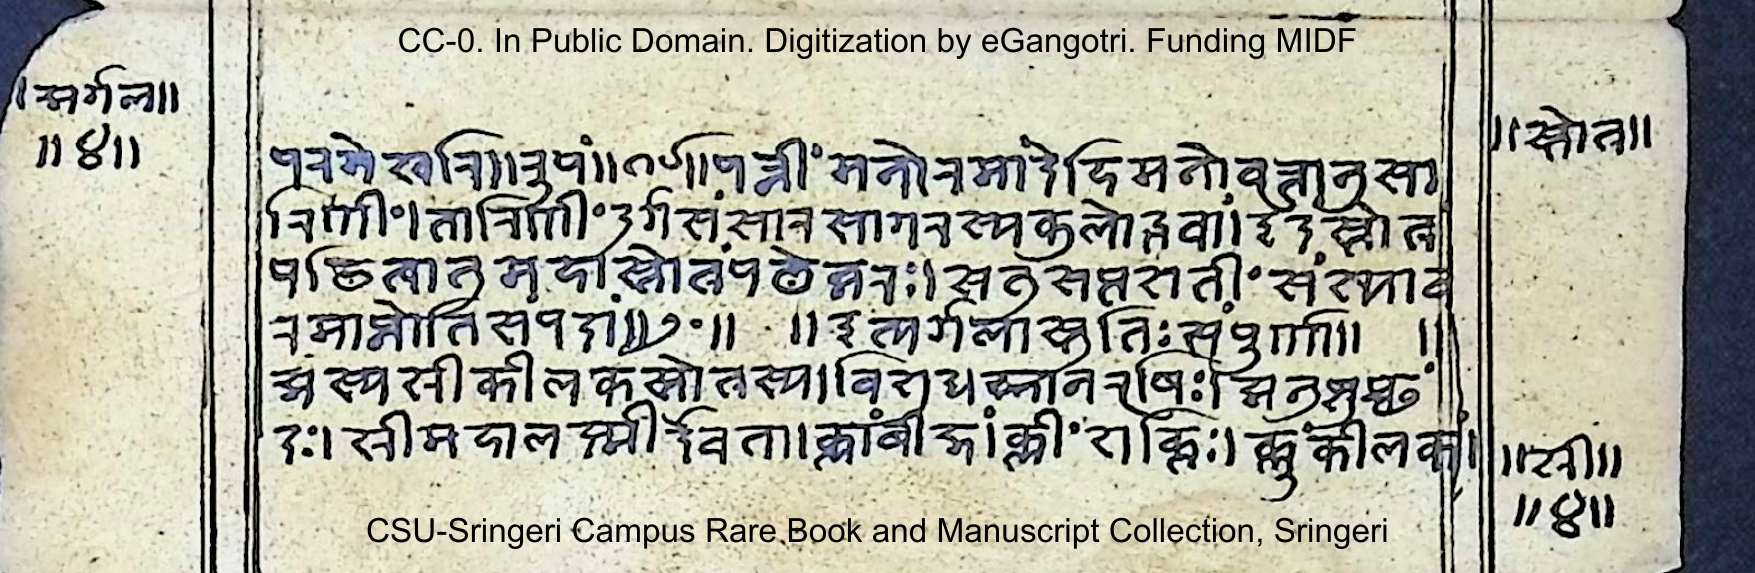 CC-0. In Public Domain. Digitization by eGangotri. Funding MIDF
॥अर्गल॥
॥४॥
॥स्तोत्र॥
परमेश्वरि॥रुपं॥१९॥पत्नीं मनोरमां देहि मनोवृत्तानुसा
रिणीं।तारिणीं दुर्गसंसारसागरस्य कुलोद्भवां।इदं स्तोत्रं
पठित्वा तु महास्तोत्रं पठेन्नरः।स तु सप्तशतीं संख्याव
रमाप्नोति संपदां॥२०॥ ॥इत्यर्गलास्तुतिः संपुर्णा॥ ॥
अस्य स्री कीलकस्तोत्रस्य।
ऋषिः।अनुष्टुप्छं
दः।स्री महालक्ष्मीर्देवता।
बीजं।क्लीं शक्तिः।
कीलकं।
॥स्री॥
॥४॥
CSU-Sringeri Campus Rare Book and Manuscript Collection, Sringeri